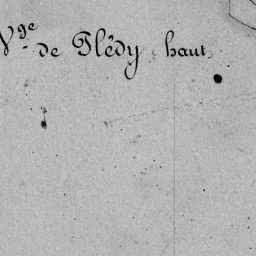 Vge de Plédy haut